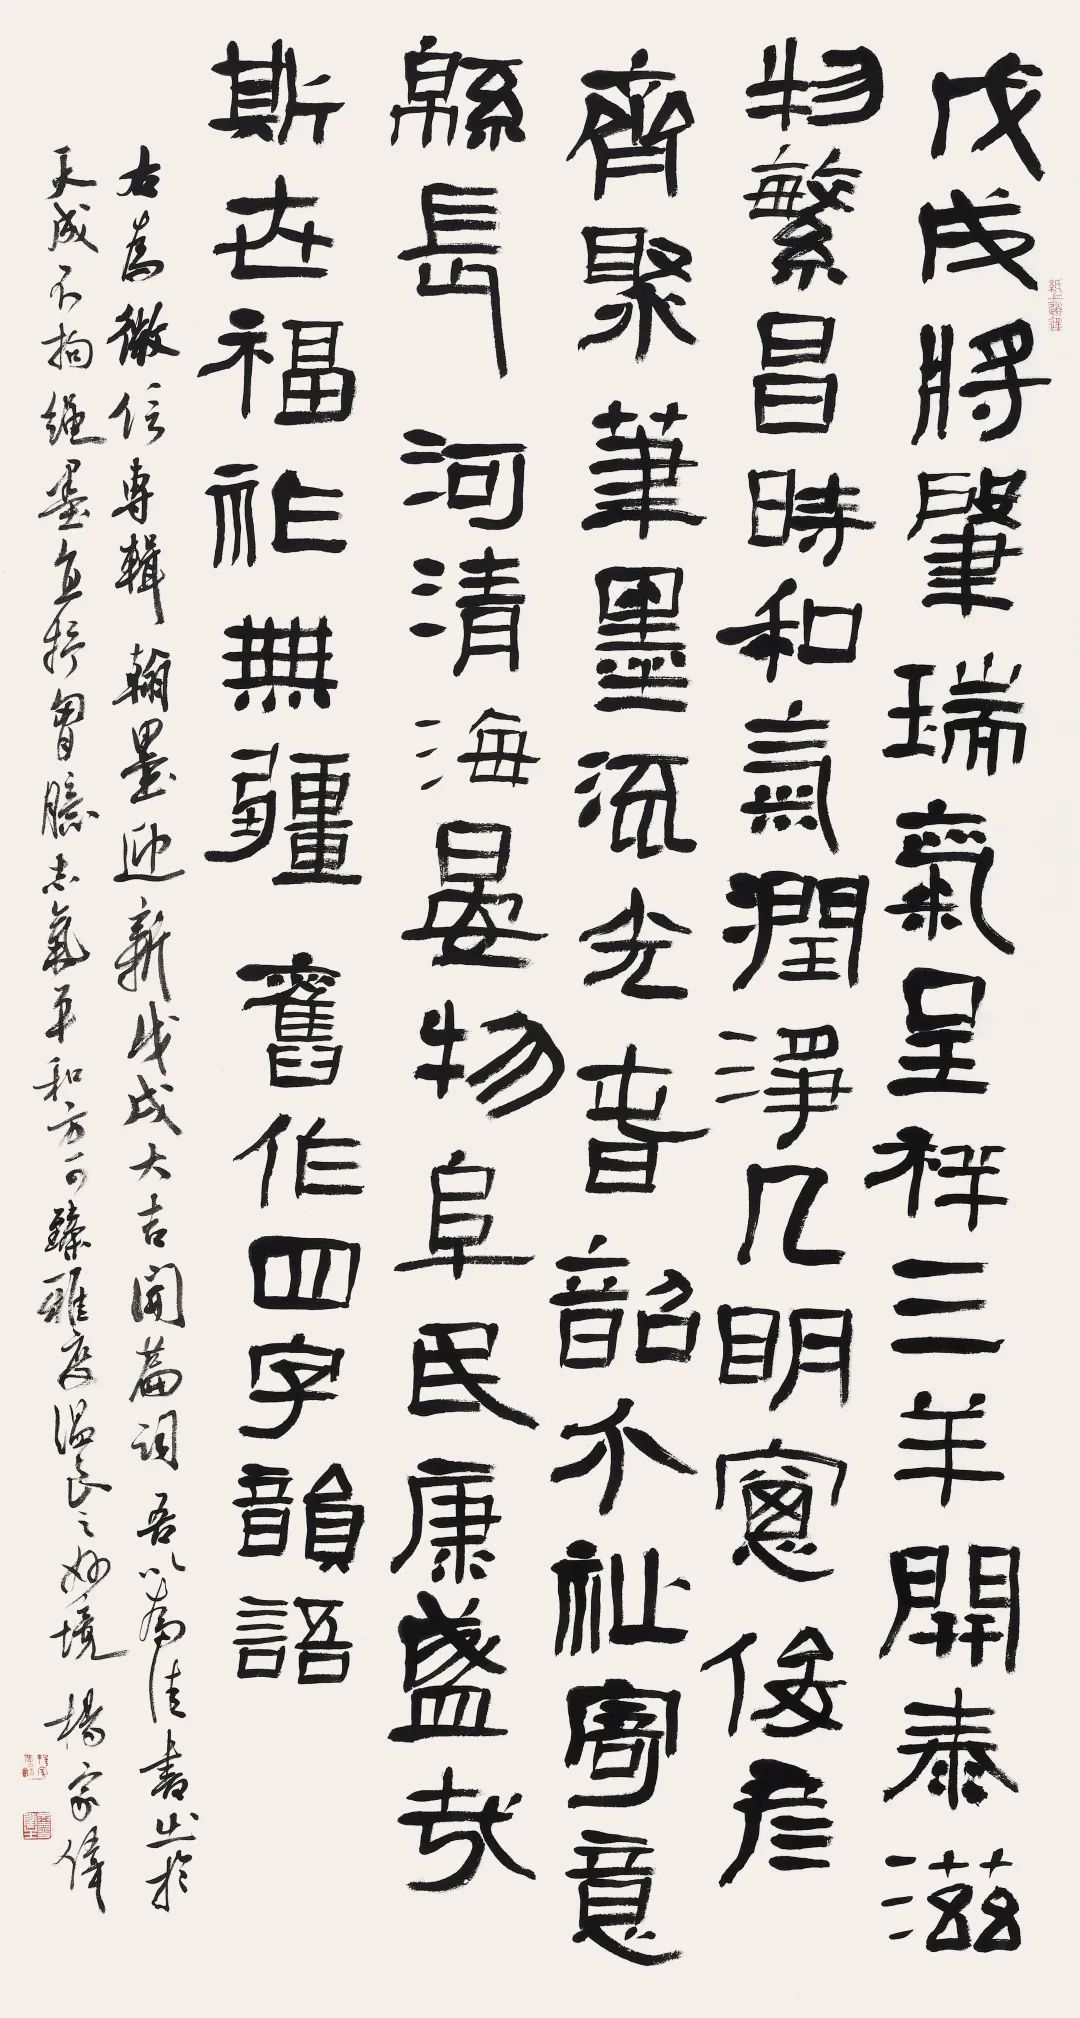 戊戌將肇瑞氣呈祥三羊開泰滋
物繁昌時和氣潤淨几明窗俊彥
齊聚筆墨流光耆韶介祉寄意
緜長河清海晏物阜民康盛哉
斯世福祚無疆舊作四字韻語
右為微信專輯翰墨迎新戊戌大吉開篇詞吾以為佳書出於
天成不拘繩墨直抒胷臆志氣平和方可臻雅度温良之妙境 楊家偉